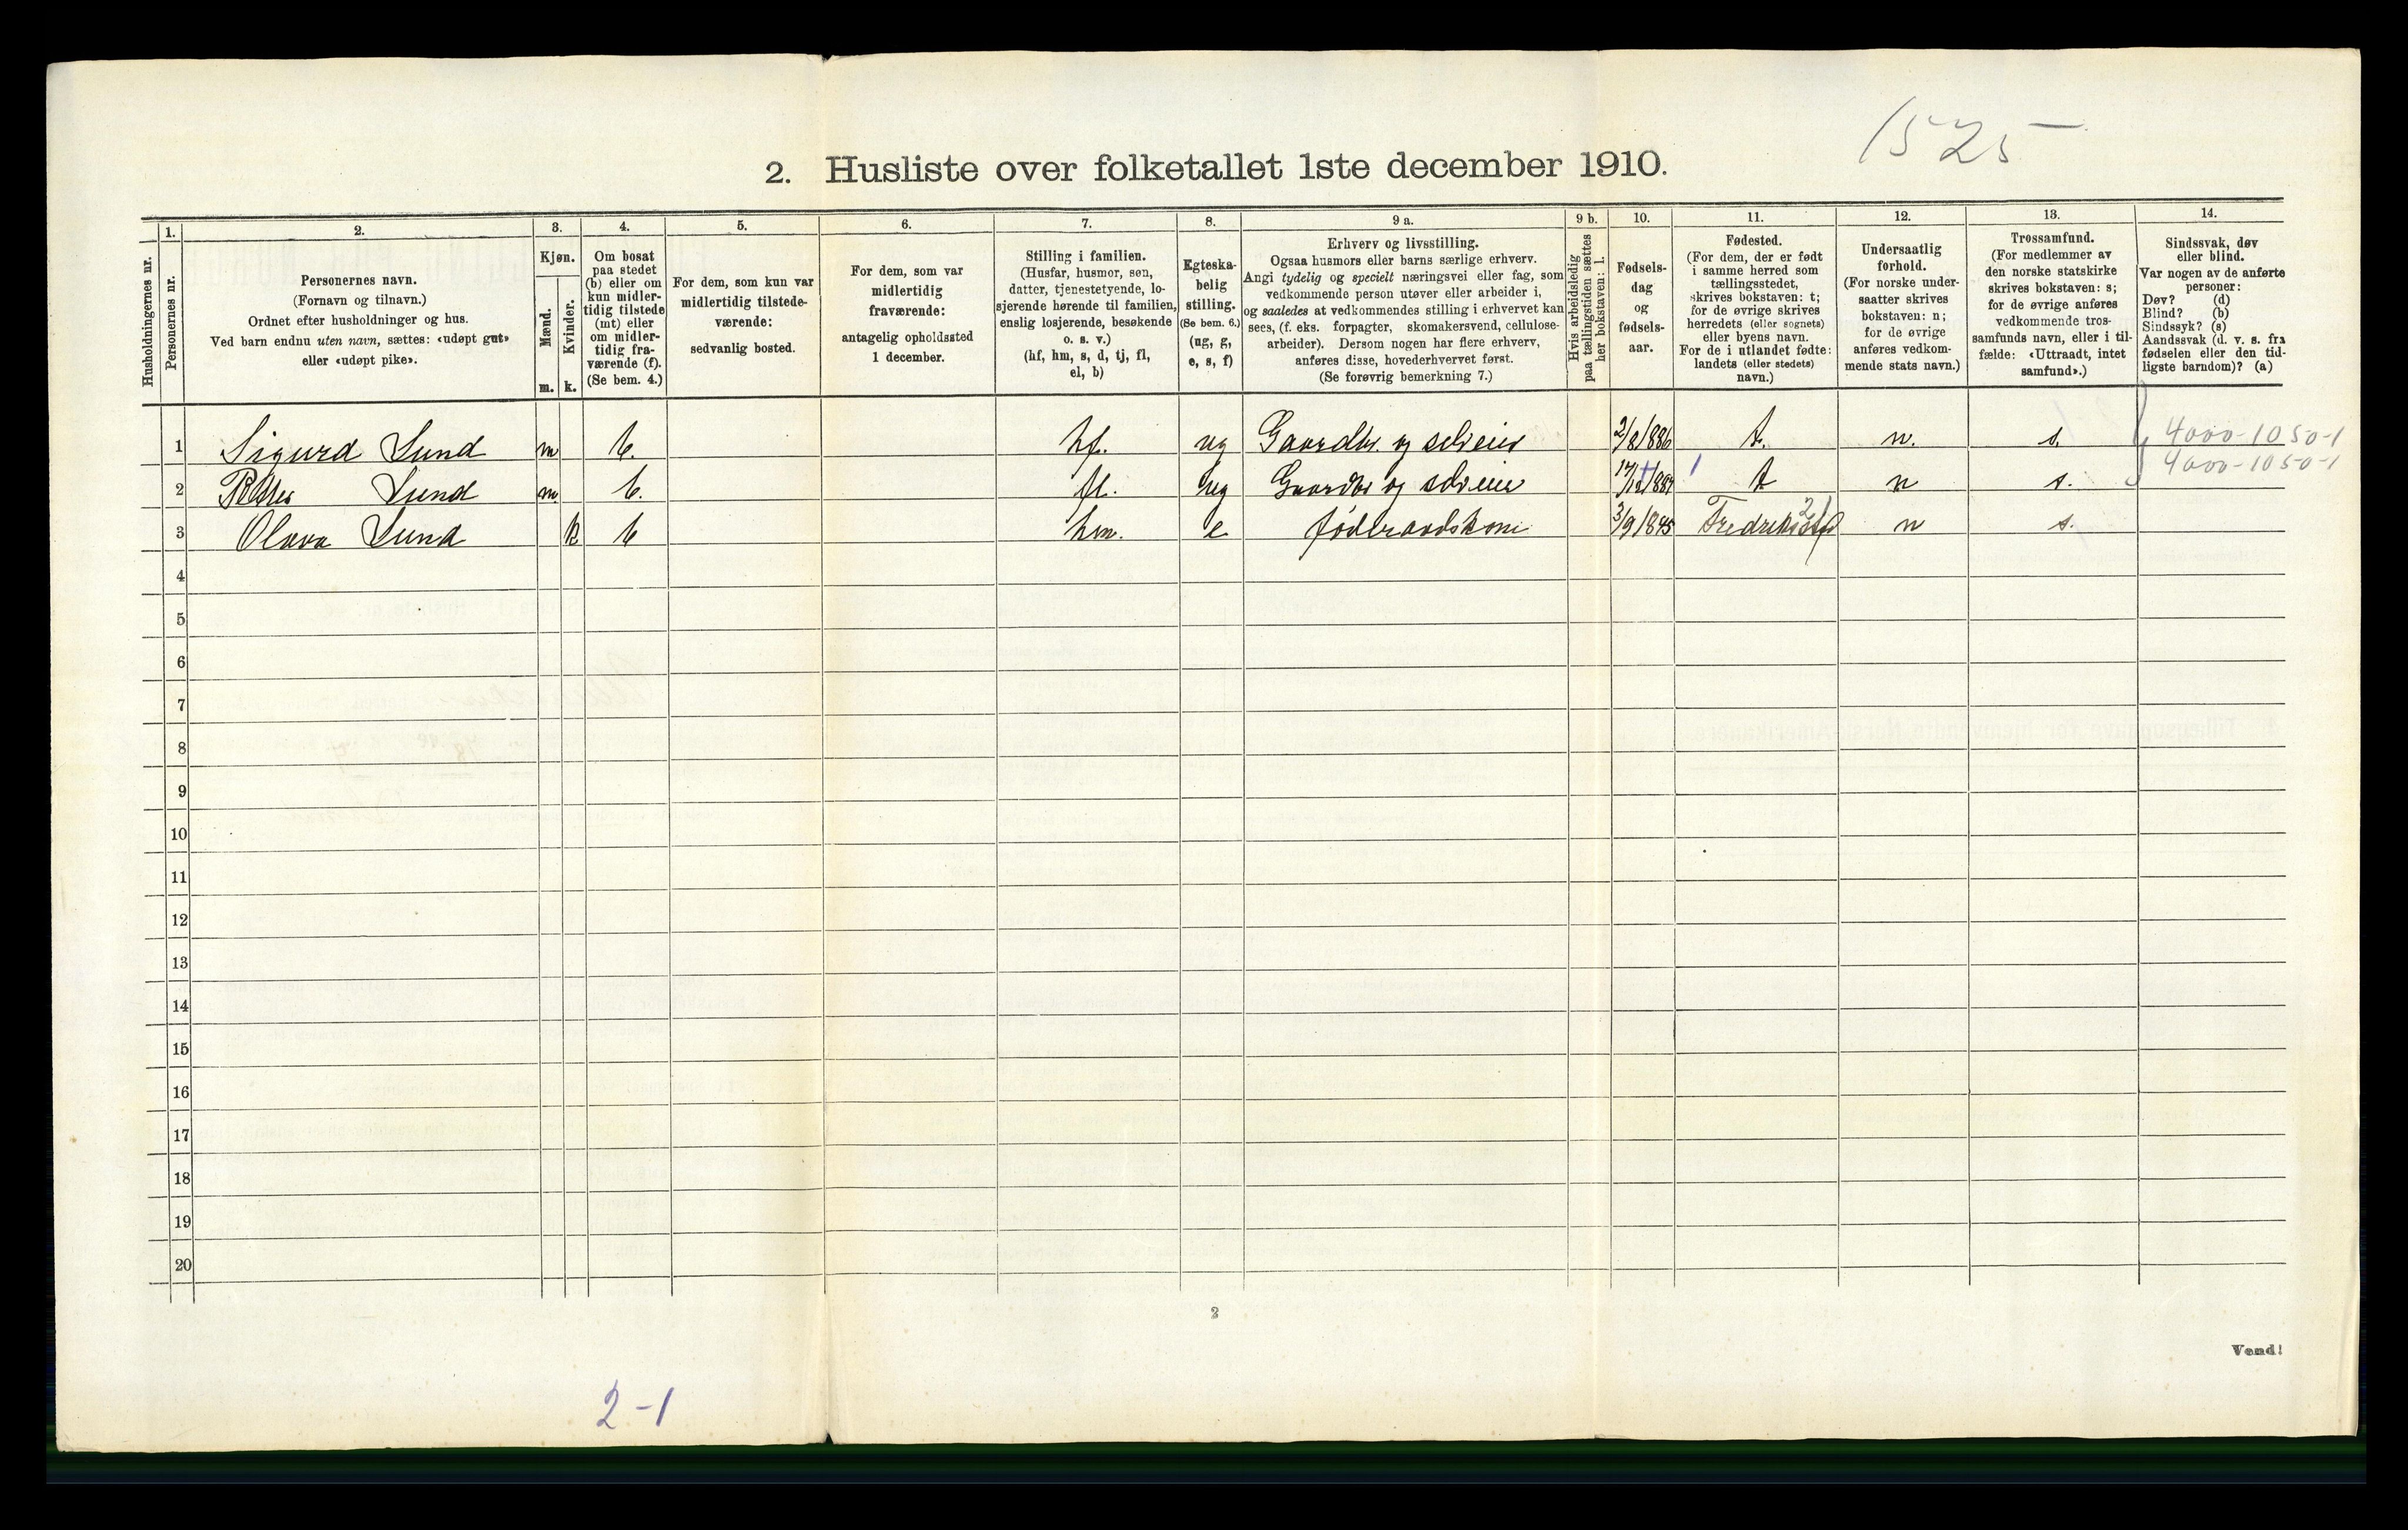 1525
2. Husliste over folketallet 1ste december 1910.
Husholdningernes nr.
1. Personernes nr.
2. Personernes navn.
(Fornavn og tilnavn.)
Ordnet efter husholdninger og hus.
Ved barn endnu uten navn, sættes: «udøpt gut»
eller «udøpt pike».
3. Kjøn.
Mænd. m.
Kvinder. k.
4. Om bosat
paa stedet
(b) eller om
kun midler-
tidig tilstede
(mt) eller
om midler-
tidig fra-
værende (f).
(Se bem. 4.)
5. For dem, som kun var
midlertidig tilstede-
værende:
sedvanlig bosted.
6. For dem, som var
midlertidig
fraværende:
antagelig opholdssted
1 december.
7. Stilling i familien.
(Husfar, husmor, søn,
datter, tjenestetyende, lo-
sjerende hørende til familien,
enslig losjerende, besøkende
o. s. v.)
(hf, hm, s, d, tj, fl,
el, b)
8. Egteska-
belig
stilling.
(Se bem. 6.)
(ug, g,
e, s, f)
9 a. Erhverv og livsstilling.
Ogsaa husmors eller barns særlige erhverv.
Angi tydelig og specielt næringsvei eller fag, som
vedkommende person utøver eller arbeider i,
og saaledes at vedkommendes stilling i erhvervet kan
sees, (f. eks. forpagter, skomakersvend, cellulose-
arbeider). Dersom nogen har flere erhverv,
anføres disse, hovederhvervet først.
(Se forøvrig bemerkning 7.)
9 b. Hvis arbeidsledig
paa tællingstiden sættes
her bokstaven: l.
10. Fødsels-
dag
og
fødsels-
aar.
11. Fødested.
(For dem, der er født
i samme herred som
tællingsstedet,
skrives bokstaven: t;
for de øvrige skrives
herredets (eller sognets)
eller byens navn.
For de i utlandet fødte:
landets (eller stedets)
navn.)
12. Undersaatlig
forhold.
(For norske under-
saatter skrives
bokstaven: n;
for de øvrige
anføres vedkom-
mende stats navn.)
13. Trossamfund.
(For medlemmer av
den norske statskirke
skrives bokstaven: s;
for de øvrige anføres
vedkommende tros-
samfunds navn, eller i til-
fælde: «Uttraadt, intet
samfund».)
14. Sindssvak, døv
eller blind.
Var nogen av de anførte
personer:
Døv? (d)
Blind? (b)
Sindssyk? (s)
Aandssvak (d. v. s. fra
fødselen eller den tid-
ligste barndom)? (a)
1 Sigurd Lund m b. hf. ug Gaardbr. og selveier 2/8/886 t. n. s. 4000-1050-1
4000-1050-1
2 Lund m b. fl. ug Gaardbr og selveier t n s.
3 Olava Lund k b hm. e føderaadskone 3/9/845 Fredrikstad n s.
4
5
6
7
8
9
10
11
12
13
14
15
16
17
18
19
20
2
Vend!
2-1